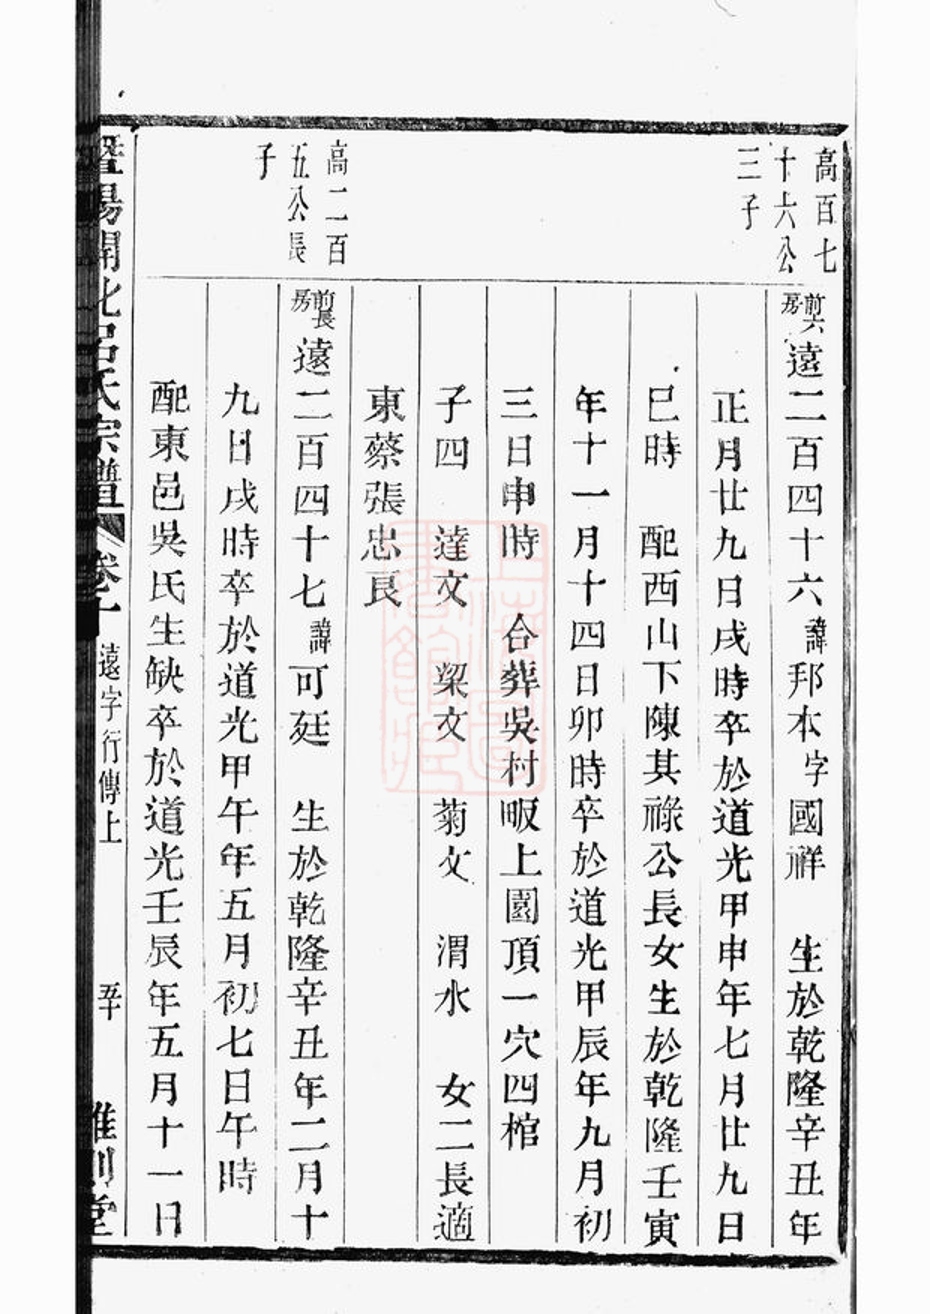 高百七
十六公
三子
前六
房
遠二百四十六諱邦本字國祥　生於乾隆辛丑年
正月廿九日戌時卒於道光甲申年七月廿九日
巳時　配西山下陳其祿公長女生於乾隆壬寅
年十一月十四日卯時卒於道光甲辰年九月初
三日申時　合葬吳村畈上園頂一穴四棺
子四　達文　梁文　菊文　渭水　女二長適
東蔡張忠良
高二百
五公長
子
前長
房
遠二百四十七諱可廷　生於乾隆辛丑年二月十
九日戌時卒於道光甲午年五月初七日午時
配東邑吳氏生缺卒於道光壬辰年五月十一日
暨陽開化呂氏宗譜　卷十　遠字行傳上　五十　惟則堂